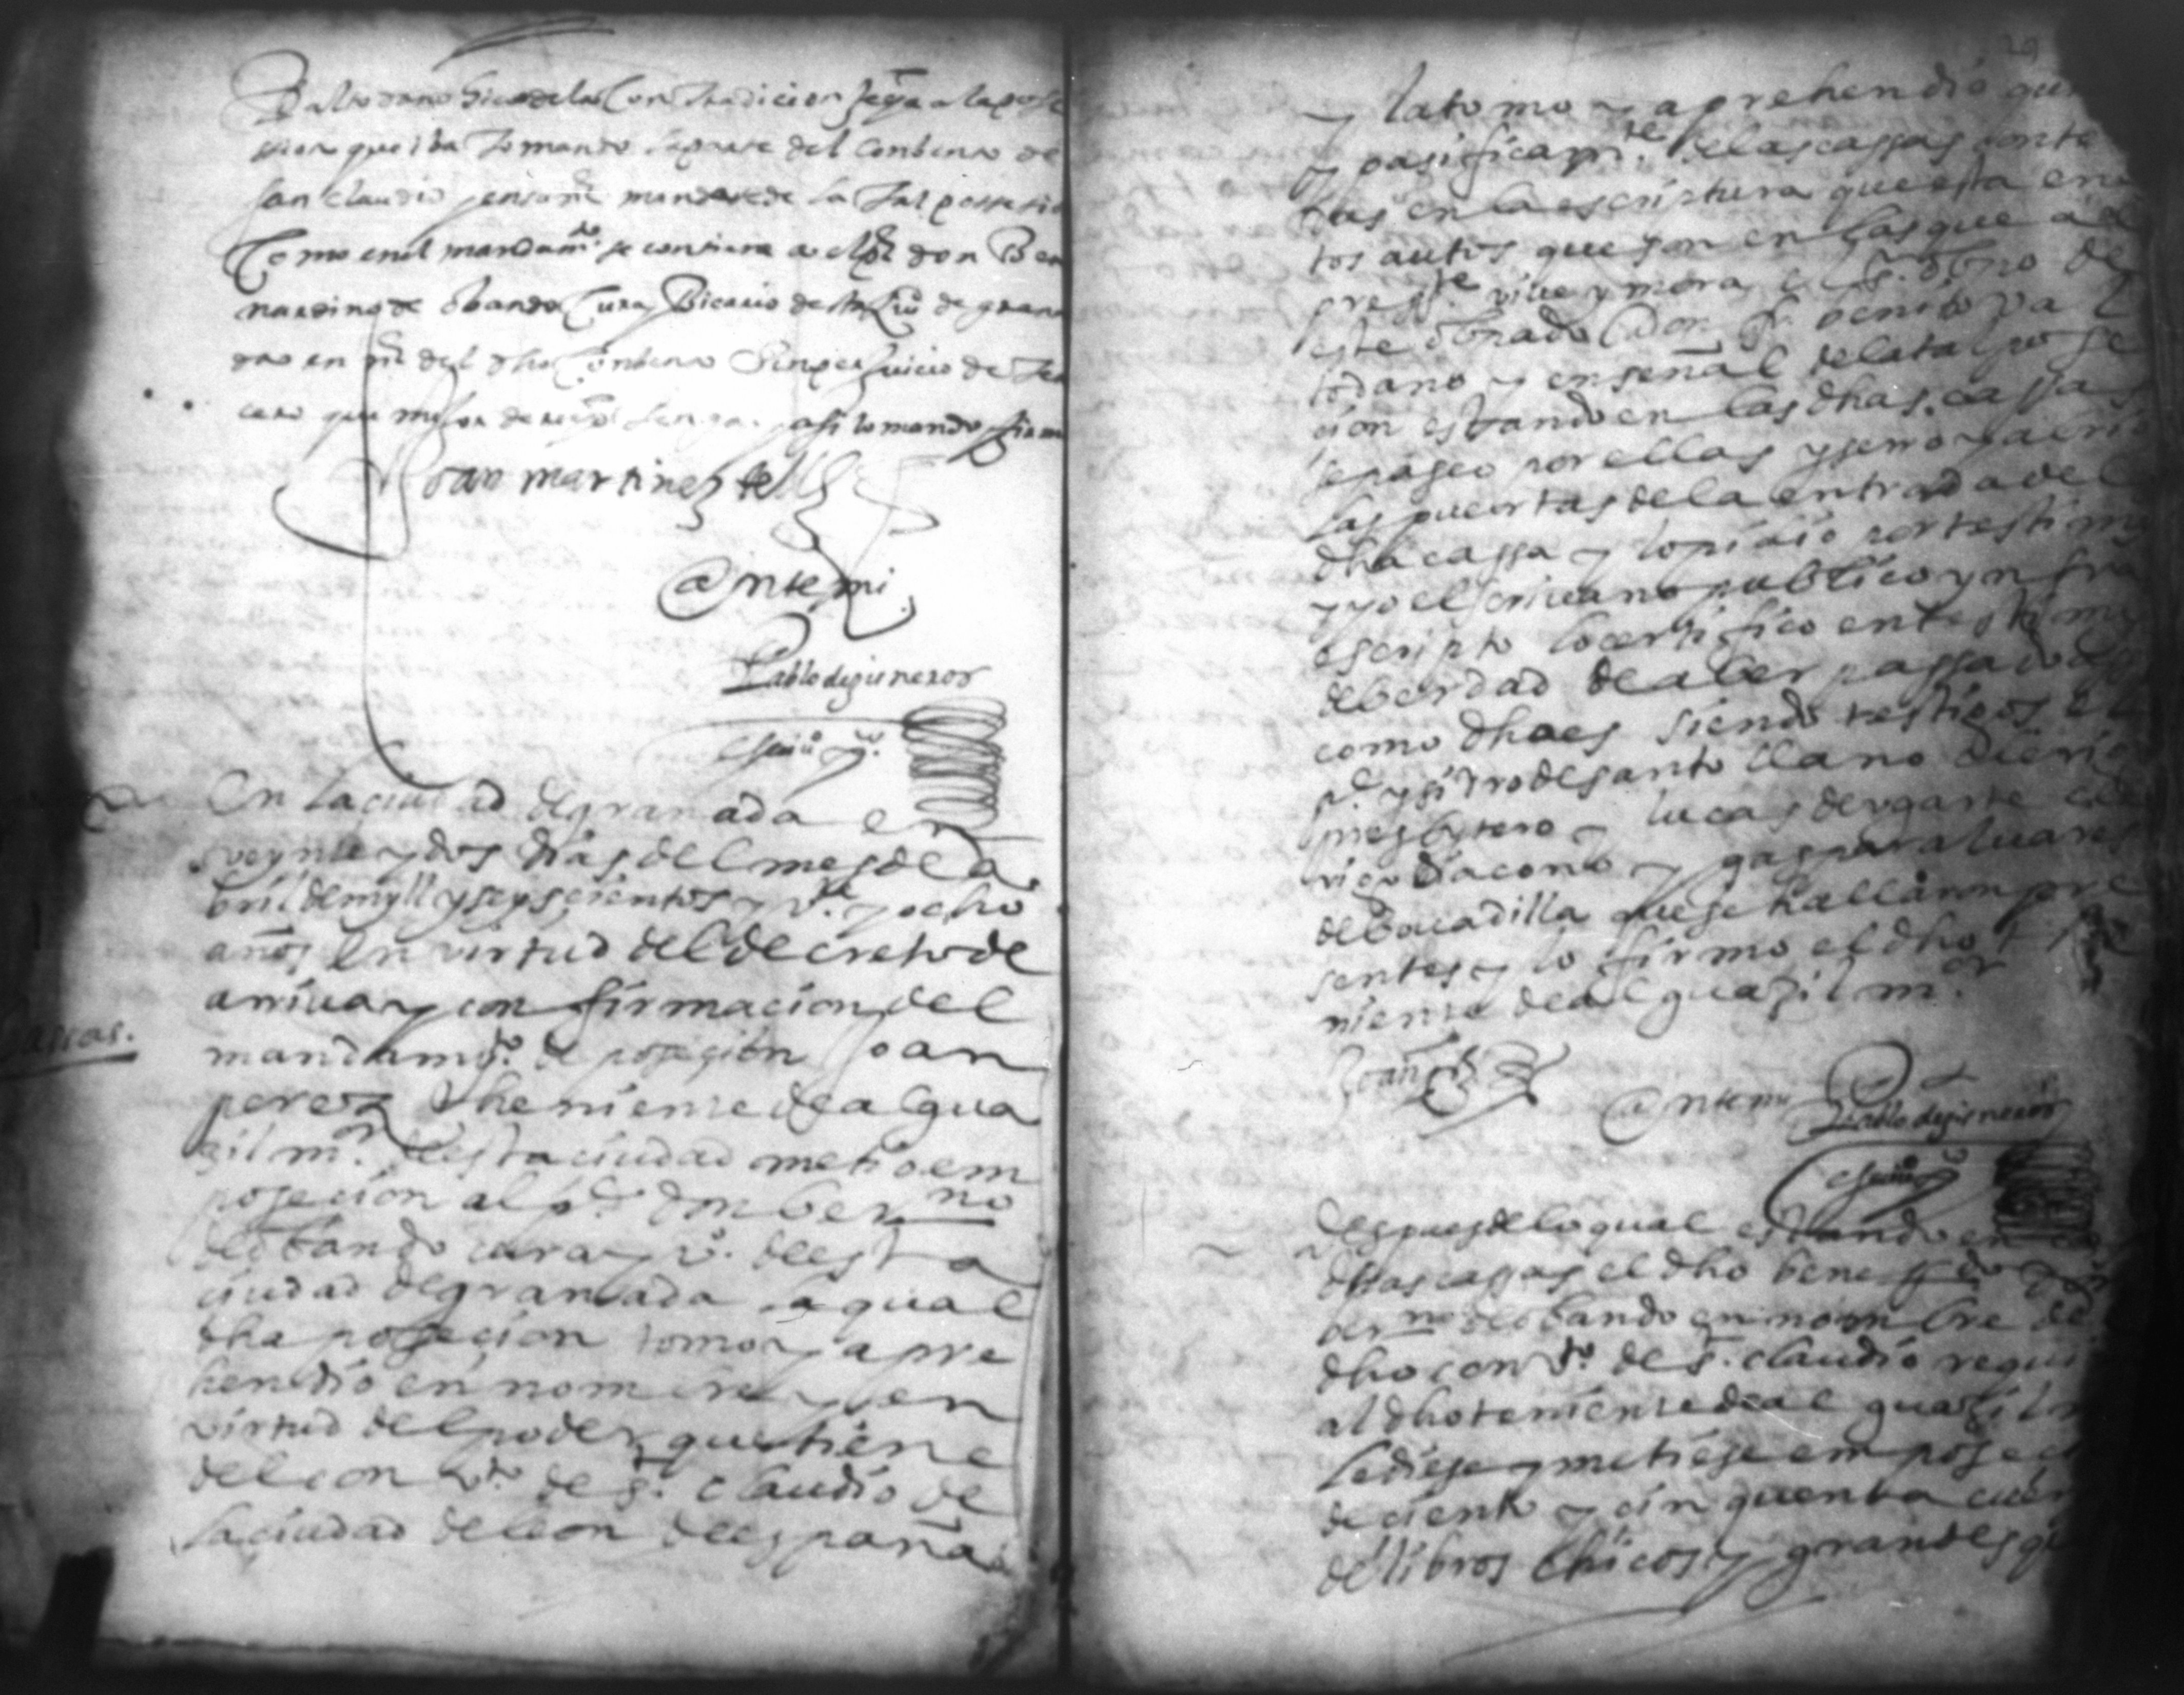 Baltodano hico de la contradicion fecha a la pose
sion que iba tomando la parte del conbento de
san claudio sensora mandose de la tal possesio
Como en el mandamto se contiene a el pe don Ber
nardino de obando Cura y Bicario desta ciud de grana
da en ne del dho Conbento Sin perjuicio de ter
cero que mejor derecho tenga. y asi lo mando y firmo
Joan martinez tello
Ante mi
Pablo de cisneros
escriuo puco
En la ciudad de granada en
veynte y dos dias del mes de a
bril de myll y seys cientos y vte y ocho
años en virtud del decreto de
arriua y con firmacion del
mandamyto de posecion joan
perez theniente de algua
zil mor desta ciudad metio em
posecion al pe don berno
de obando cura y vo. de esta
ciudad de granada la qual
dha posecion tomo y apre
hendio en nombre y en
virtud del poder que tiene
del convto de s. claudio de
la ciudad de leon de españa
casas.
29
y la tomo y aprehendio qui
y pasificamte de las cassas conte
das en la escriptura que esta en es
tos autos que son en las que al
presste vive y mora el sr. obpo de
este obpado don f. benito bal
todano y en señal de la tal pose
cion estando en las dhas. cassas
se paseo por ellas y serro y abrio
las puertas de la entrada de la
dha cassa y lo pidio por testimo
y yo el escriuano publico ynfra
escripto lo certifico en testimo
de berdad de aber passado asi
como dho es siendo testigos el
pe. ysidro de santo llano clerigo
presbitero y lucas de ugarte cle
rigo diacono y gaspar aluares
de bocadilla que se hallaron pre
sentes y lo firmo el dho te
niente de alguazil mor
Joan pes
Ante mi
Pablo de cisneros
escriuo puco
despues de lo qual estando en las
dhas cassas el dho benefdo don
berno de obando en nombre del
dho convto. de s. claudio requi
al dho teniente de alguazil m
le diese y metiese em posecion
de ciento y cinquenta cuer
de libros chicos y grandes q